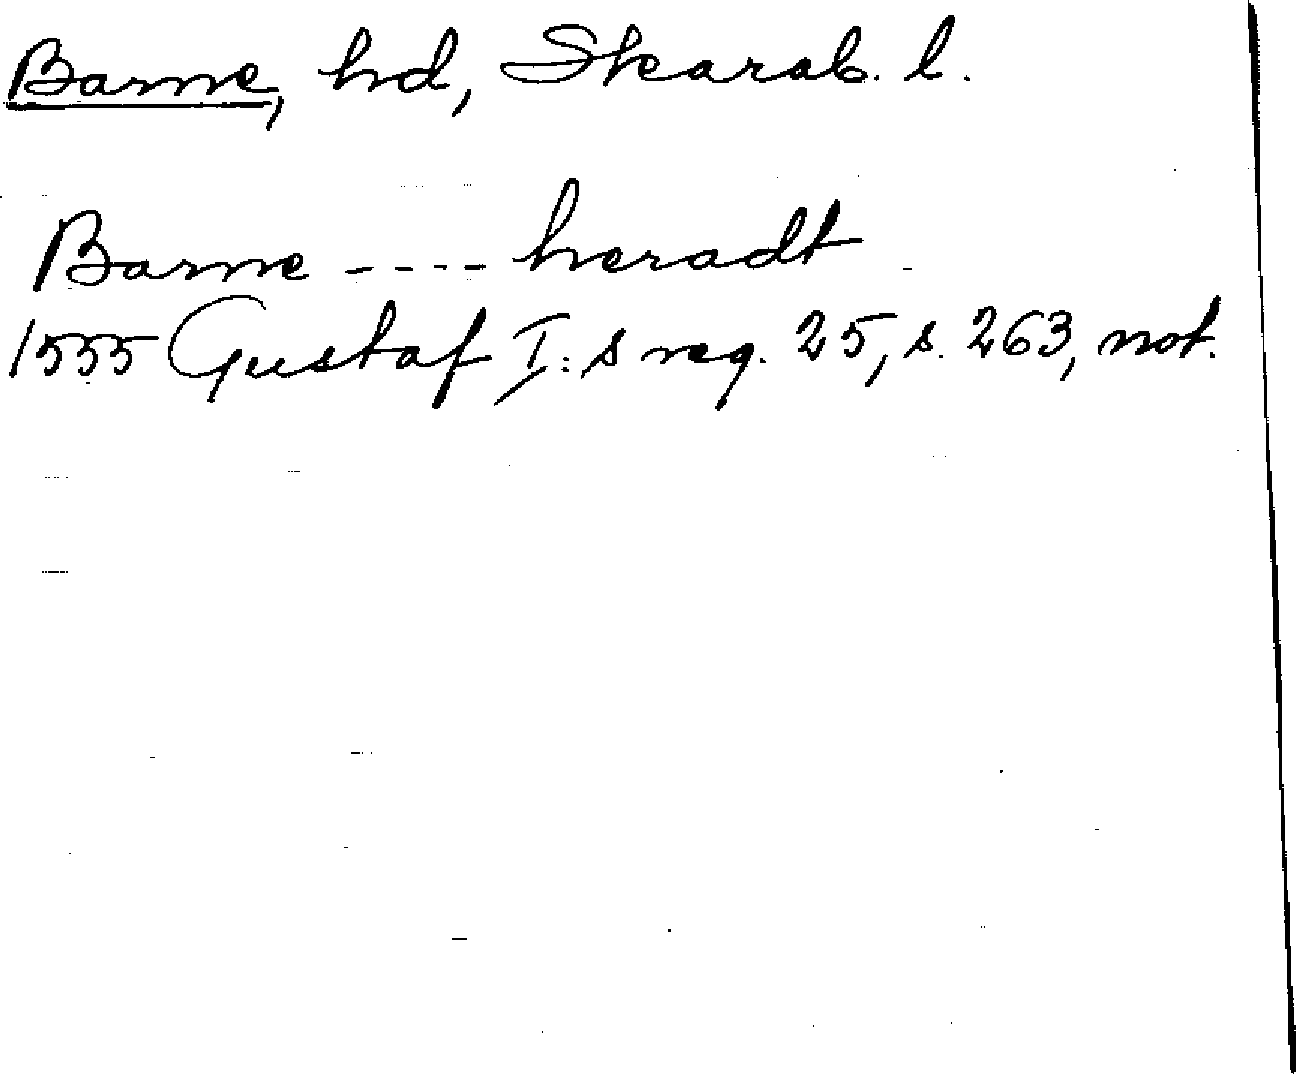 Barne, hd, Skarab. l.
Barne ---- heradt
1555 Gustaf I:s reg. 25, s. 263, not.